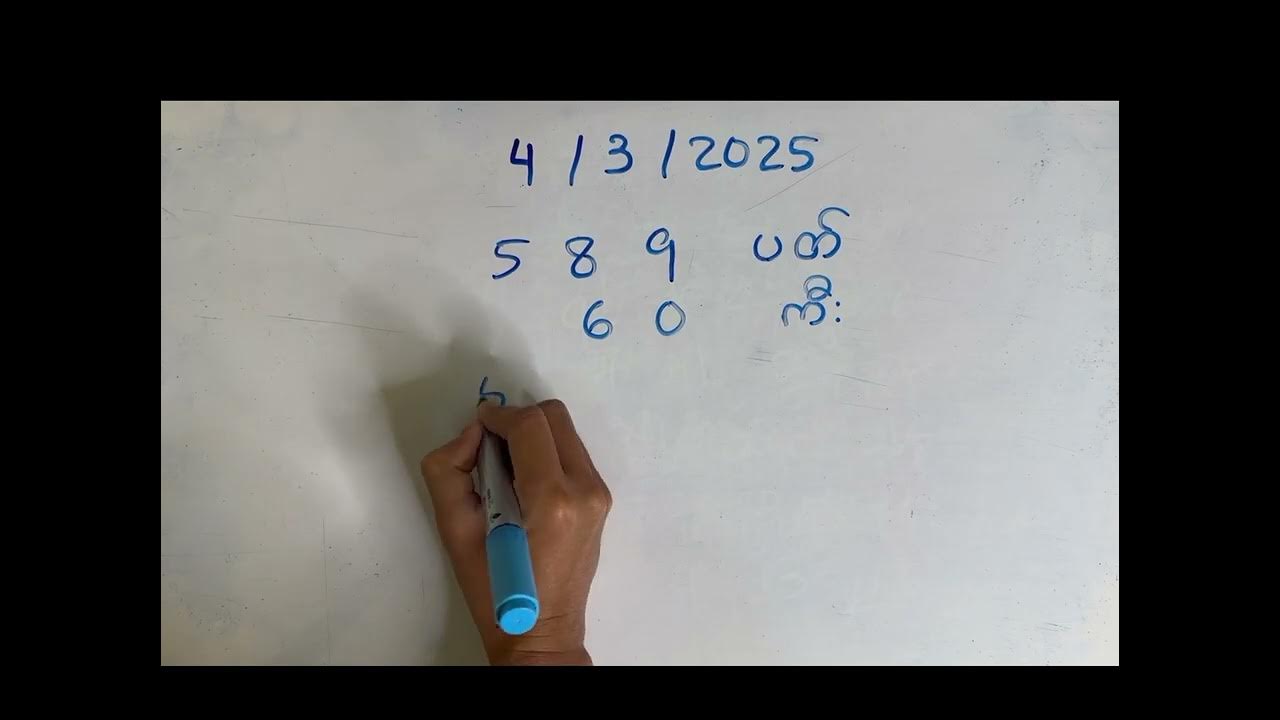 4 / 3 / 2025
5 8 9 ပတ်
6 0 ကီး
5